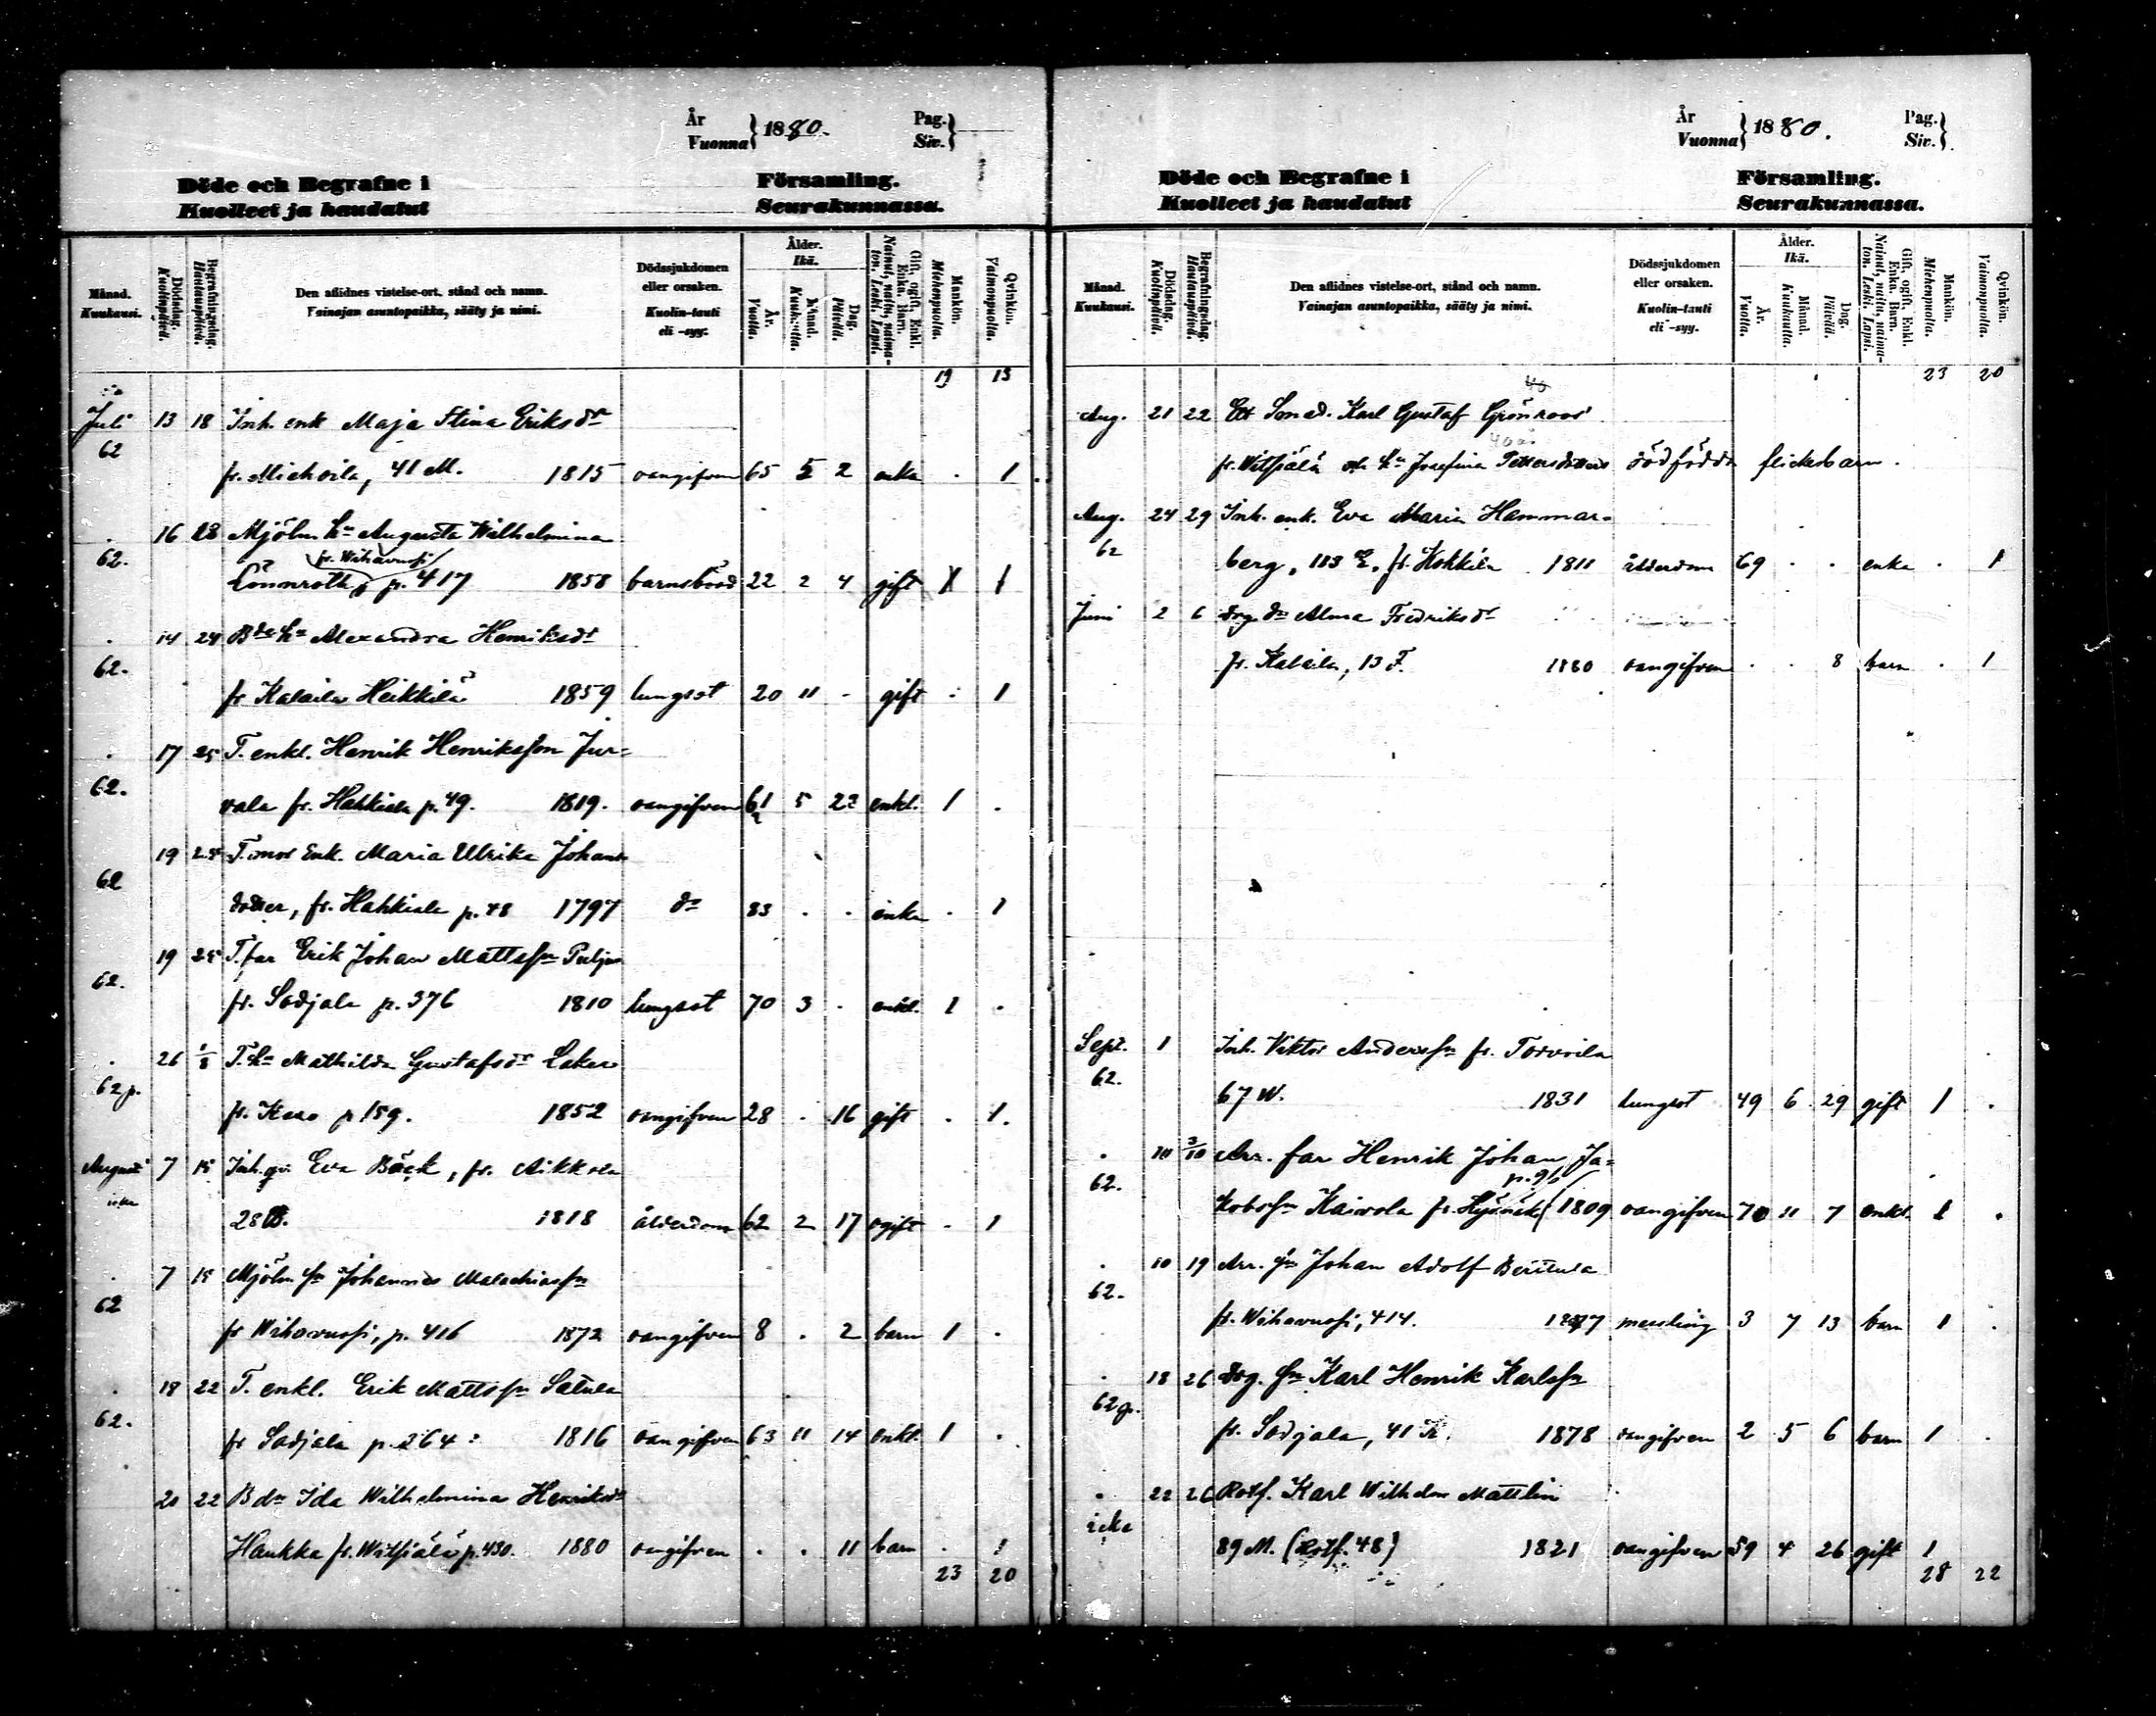 År
Vuonna } 1880.
Pag.
Siv. }
Döde och Begrafne i Församling.
Kuolleet ja haudatut Seurakunnassa.
Månad. Kuukausi.
Dödsdag. Kuolinpäivä.
Begrafningsdag. Hautauspäivä.
Den aflidnes vistelse-ort, stånd och namn.
Vainajan asuntopaikka, sääty ja nimi.
Dödssjukdomen eller orsaken.
Kuolin-tauti eli -syy.
Ålder. Ikä.
År. Vuotta.
Månad. Kuukautta.
Dag. Päivää.
Gift, ogift, Enkl. Enka. Barn.
Nainut, naitu, naimaton. Leski. Lapsi.
Mankön. Miehenpuolta.
Qvinkön. Vaimonpuolta.
19 13
Juli 13 18 Inh. enk Maja Stina Eriksdr
62 fr. Michoila, 41 M. 1815 oangifven 65 5 2 enka . 1
. 16 18 Mjöln. hu Augusta Wilhelmina
fr. Wihavuosi
62. Lönnroth, p. 417 1858 barnsbörd 22 2 4 gift 1
. 14 24 Bde hu Alexandra Henriksdr
62. fr Kalaila Heikkilä 1859 lungsot 20 11 - gift . 1
. 17 25 T. enkl. Henrik Henriksson Jur-
62. vala fr. Hahkiala p. 49. 1819. oangifven 61 5 22 enkl. 1 .
19 25 T. mor Enk. Maria Ulrika Johans
62 dotter, fr. Hahkiala p. 48 1797 do 83 . . enka . 1
19 25 T. far Erik Johan Mattssn
62. fr. Sodjala p. 376 1810 lungsot 70 3 . enkl. 1 .
. 26 1/8 T. hu Mathilda Gustafsdr
62 p. fr. p 159. 1852 oangifven 28 . 16 gift . 1.
Augusti 7 15 Inh. qv. Eva Bäck, fr.
icke 28 B. 1818 ålderdom 62 2 17 ogift - 1
. 7 15 Mjöln. sn Johannes Malachiassn
62 fr Wihavuosi, p. 416 1872 oangifven 8 . 2 barn 1 .
. 18 22 T. enkl. Erik Mattssn Satula
62. fr Sodjala p. 264 1816 oangifven 63 11 14 enkl. 1 .
20 22 B dr Ida Wilhelmina Henriksdr
Haukka fr. Witsiälä p. 430. 1880 oangifven . . 11 barn . 1
23 20
År
Vuonna } 1880.
Pag.
Siv. }
Döde och Begrafne i Församling.
Kuolleet ja haudatut Seurakunnassa.
Månad. Kuukausi.
Dödsdag. Kuolinpäivä.
Begrafningsdag. Hautauspäivä.
Den aflidnes vistelse-ort, stånd och namn.
Vainajan asuntopaikka, sääty ja nimi.
Dödssjukdomen eller orsaken.
Kuolin-tauti eli -syy.
Ålder. Ikä.
År. Vuotta.
Månad. Kuukautta.
Dag. Päivää.
Gift, ogift, Enkl. Enka. Barn.
Nainut, naitu, naimaton. Leski. Lapsi.
Mankön. Miehenpuolta.
Qvinkön. Vaimonpuolta.
23 20
Aug. 21 22 Ett Karl Gustaf Grönroos
fr. Witsiälä och hu Josefina Pettersdotters dödfödda flickebarn.
Aug. 24 29 Inh. enk. Eva Maria Hammar-
62 berg, 113 E, fr. Kokkila 1811 ålderdom 69 . . enka . 1
Juni 2 6 Drg. dr Alma Fredriksdr
fr. Kalaila, 13 F. 1880 oangifven . . 8 barn . 1
Sept. 1 Inh. Viktor Anderssn fr. Torvoila
62. 67 W. 1831 lungsot 49 6 29 gift 1 .
. 10 3/10 Arr. far Henrik Johan Ja-
p. 96
62. kobssn Kaivola fr. 1809 oangifven 70 11 7 enkl. 1 .
. 10 19 Arr. sn Johan Adolf
62. fr. Wihavuosi, 414. 1877 messling 3 7 13 barn 1 .
. 18 26 Drg. sn Karl Henrik Karlssn
62 p. fr. Sodjala, 41 K. 1878 oangifven 2 5 6 barn 1 .
. 22 26 Rotf. Karl Wilhelm Mattlin
icke 89 M. (Rotf. 48) 1821 oangifven 59 4 26 gift 1
28 22